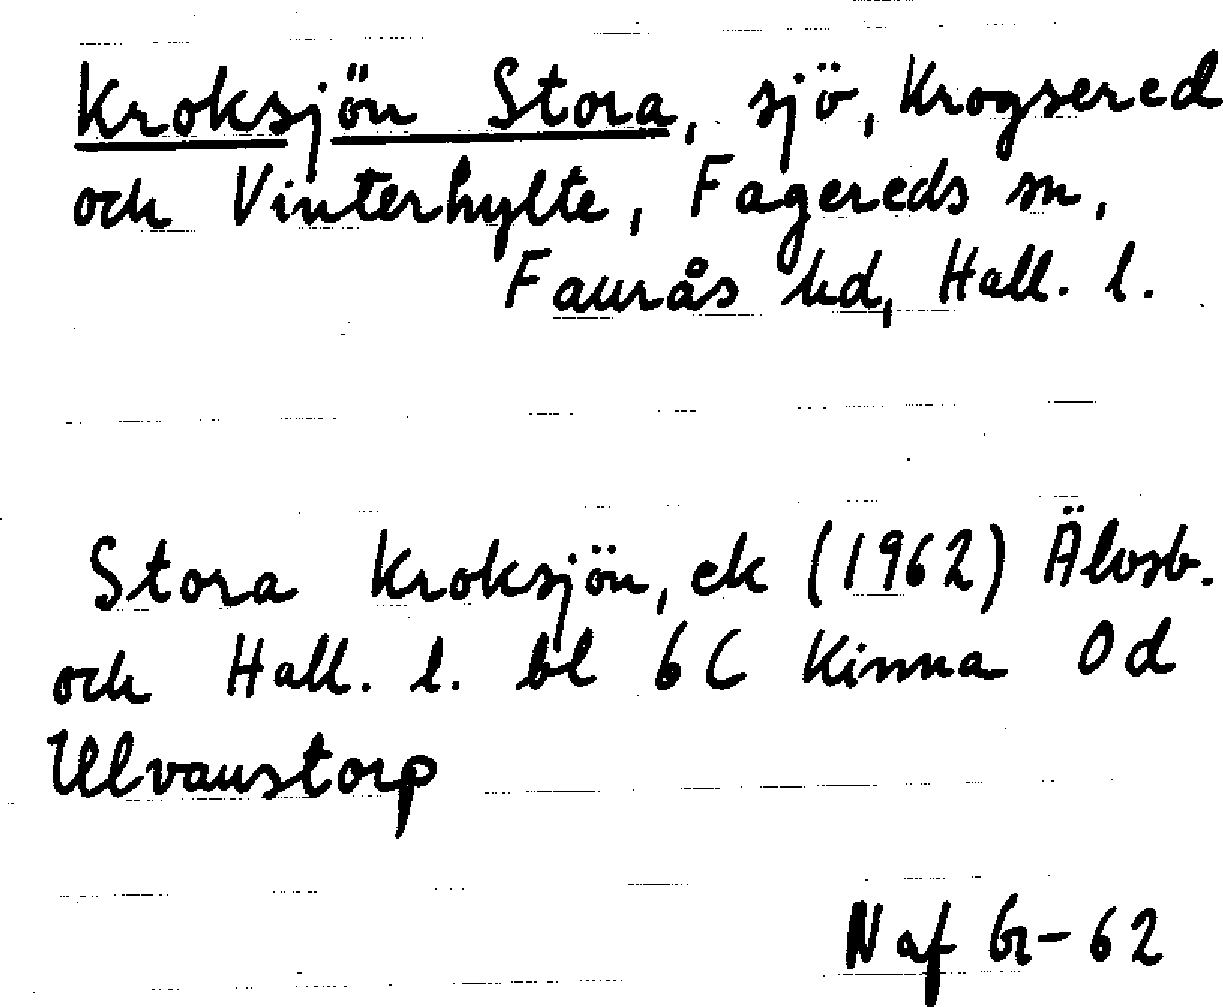 Kroksjön Stora, sjö, Krogsered
och Vinterhylte, Fagereds sn,
Faurås hd, Hall. l.
Stora Kroksjön, ek (1962) Älvsb.
och Hall. l. bl 6C Kinna 0d
Ulvanstorp
N af Gr-62